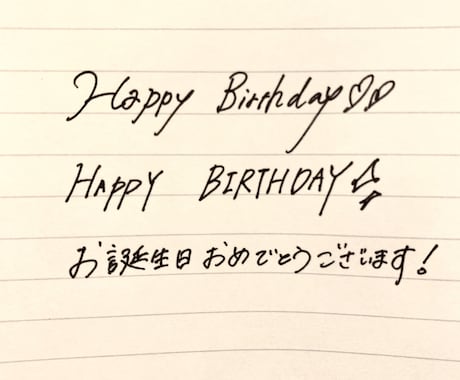 Happy Birthday♡♡
HAPPY BIRTHDAY☆
お誕生日おめでとうございます!